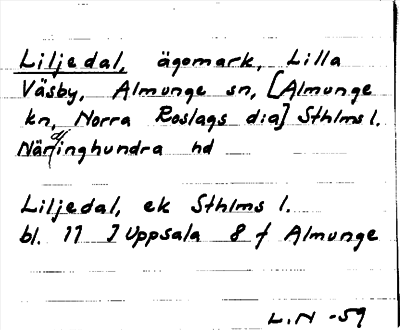 Liljedal, ägomark, Lilla
Väsby, Almunge sn, [Almunge
kn, Norra Roslags dia] Sthlms l.
Närdinghundra hd
Liljedal, ek Sthlms l.
bl. 11 I Uppsala 8 f Almunge
L.N -59